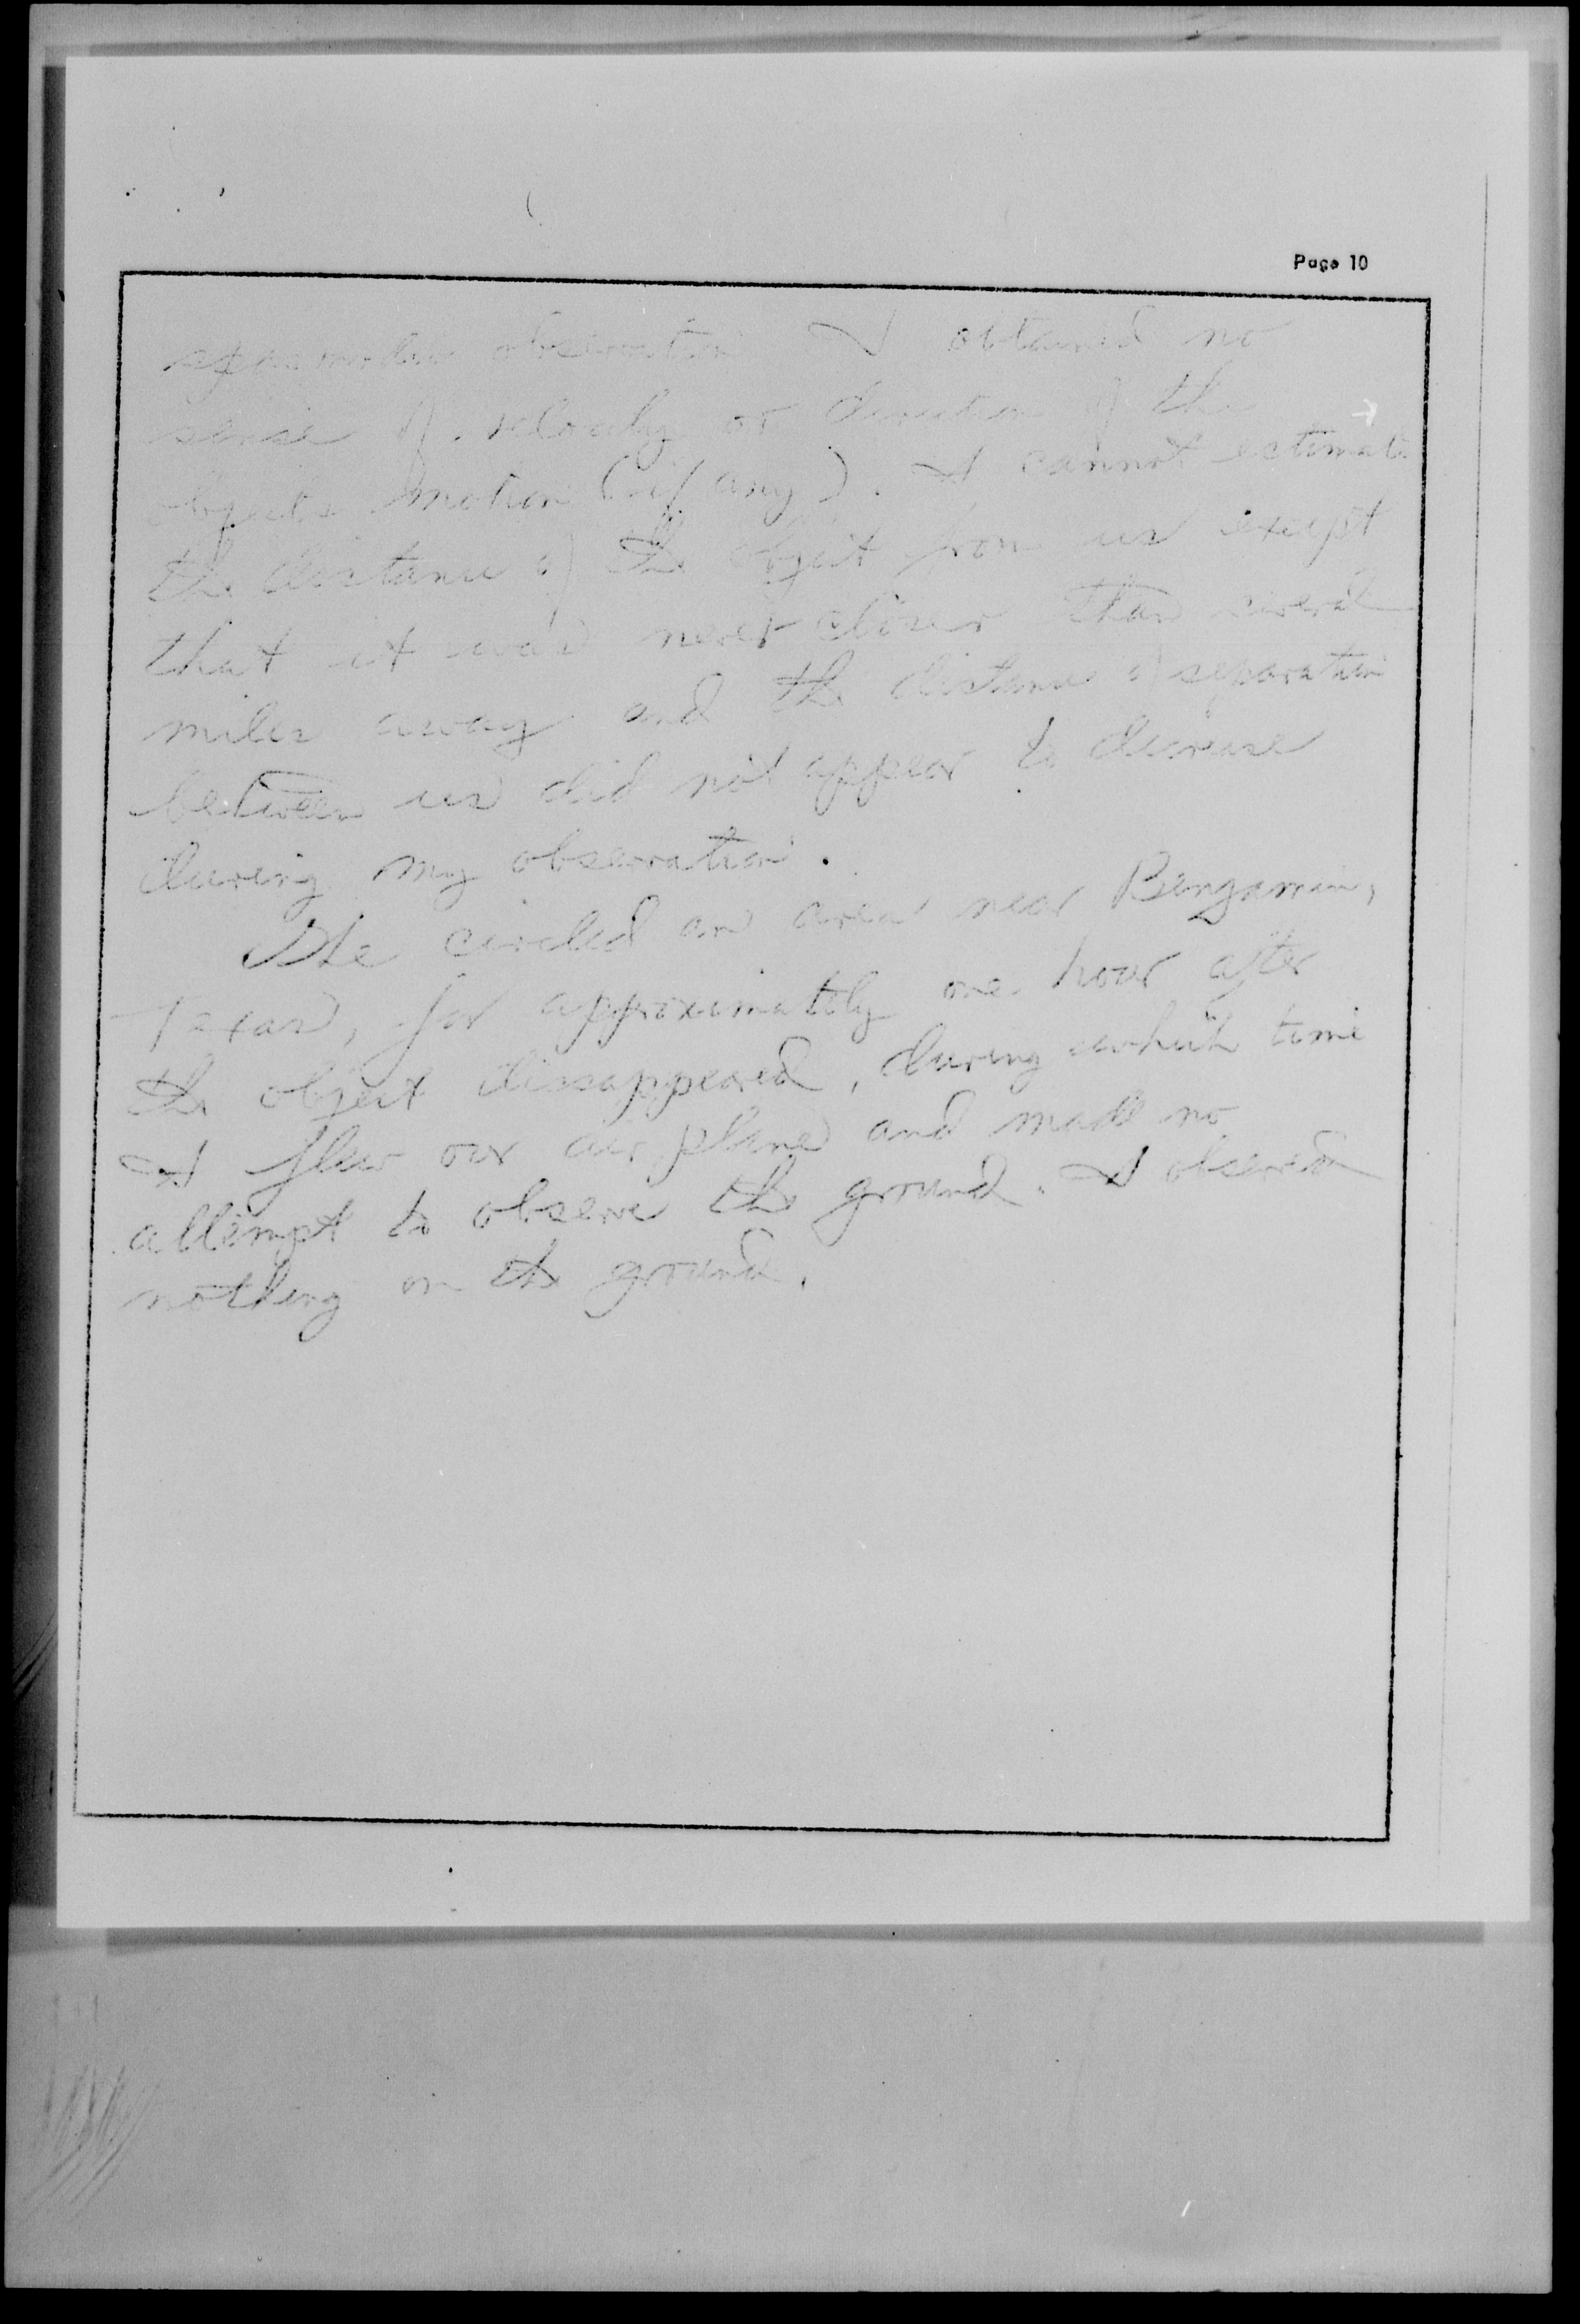 Page 10
spasmodic observation I obtained no
sense of velocity or direction of the
objects motion (if any). I cannot estimate
the distance of the object from us except
that it was never closer than several
miles away and the distance of separation
between us did not appear to decrease
during my observation.
We circled an area near Bengamin,
Texas, for approximately one hour after
the object dissappeared, during which time
I flew our airplane and made no
attempt to observe the ground. I observed
nothing on the ground.